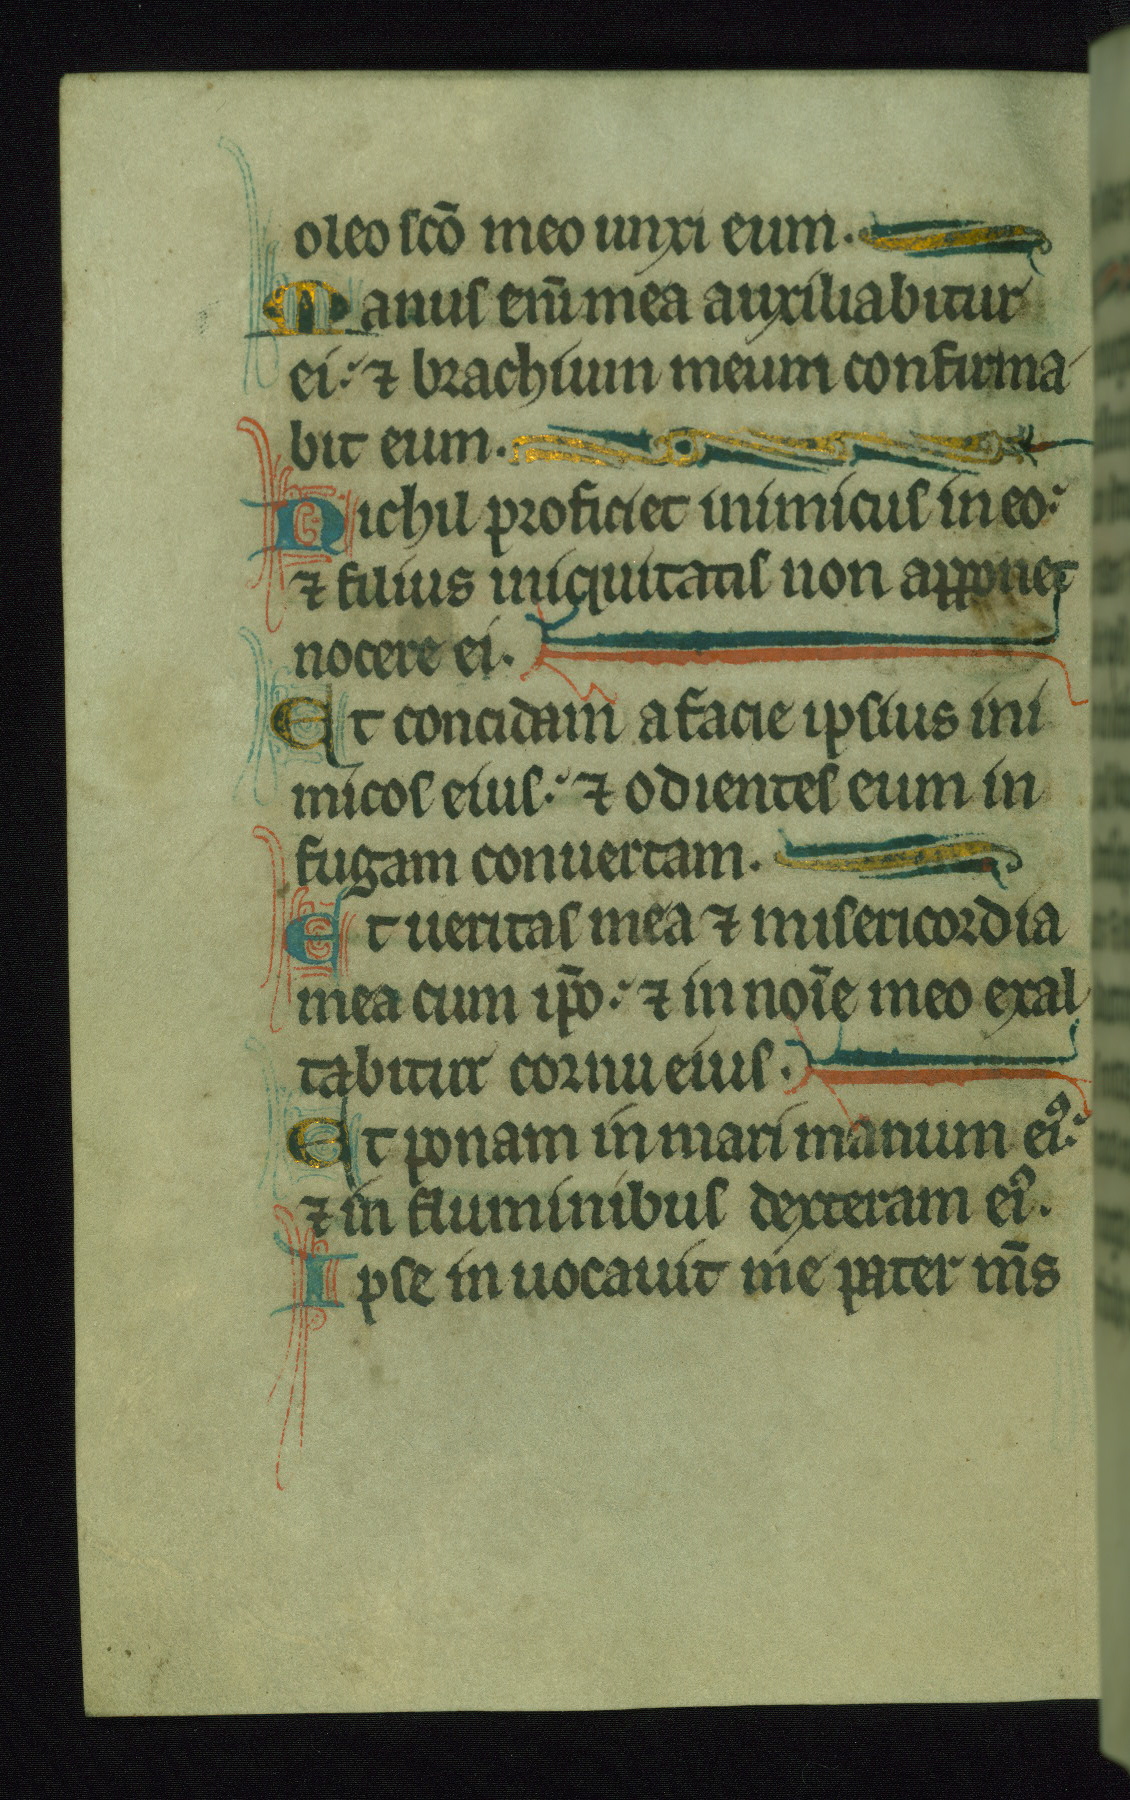 oleo scō meo unxi eum.
Manus eni̅ mea auxiliabitur
ei: ⁊ brachium meum confirma
bit eum.
Nichil proficiet inimicus in eo:
⁊ filius iniquitatis non apponet
nocere ei.
Et concidam a facie ipsius ini
micos eius: ⁊ odientes eum in
fugam conuertam.
Et ueritas mea ⁊ misericordia
mea cum ip̄o: ⁊ in noīe meo exal
tabitur cornu eius.
Et ponam in mari manum eiꝰ:
⁊ in fluminibus dexteram eiꝰ.
Ipse inuocauit me pater m̄s